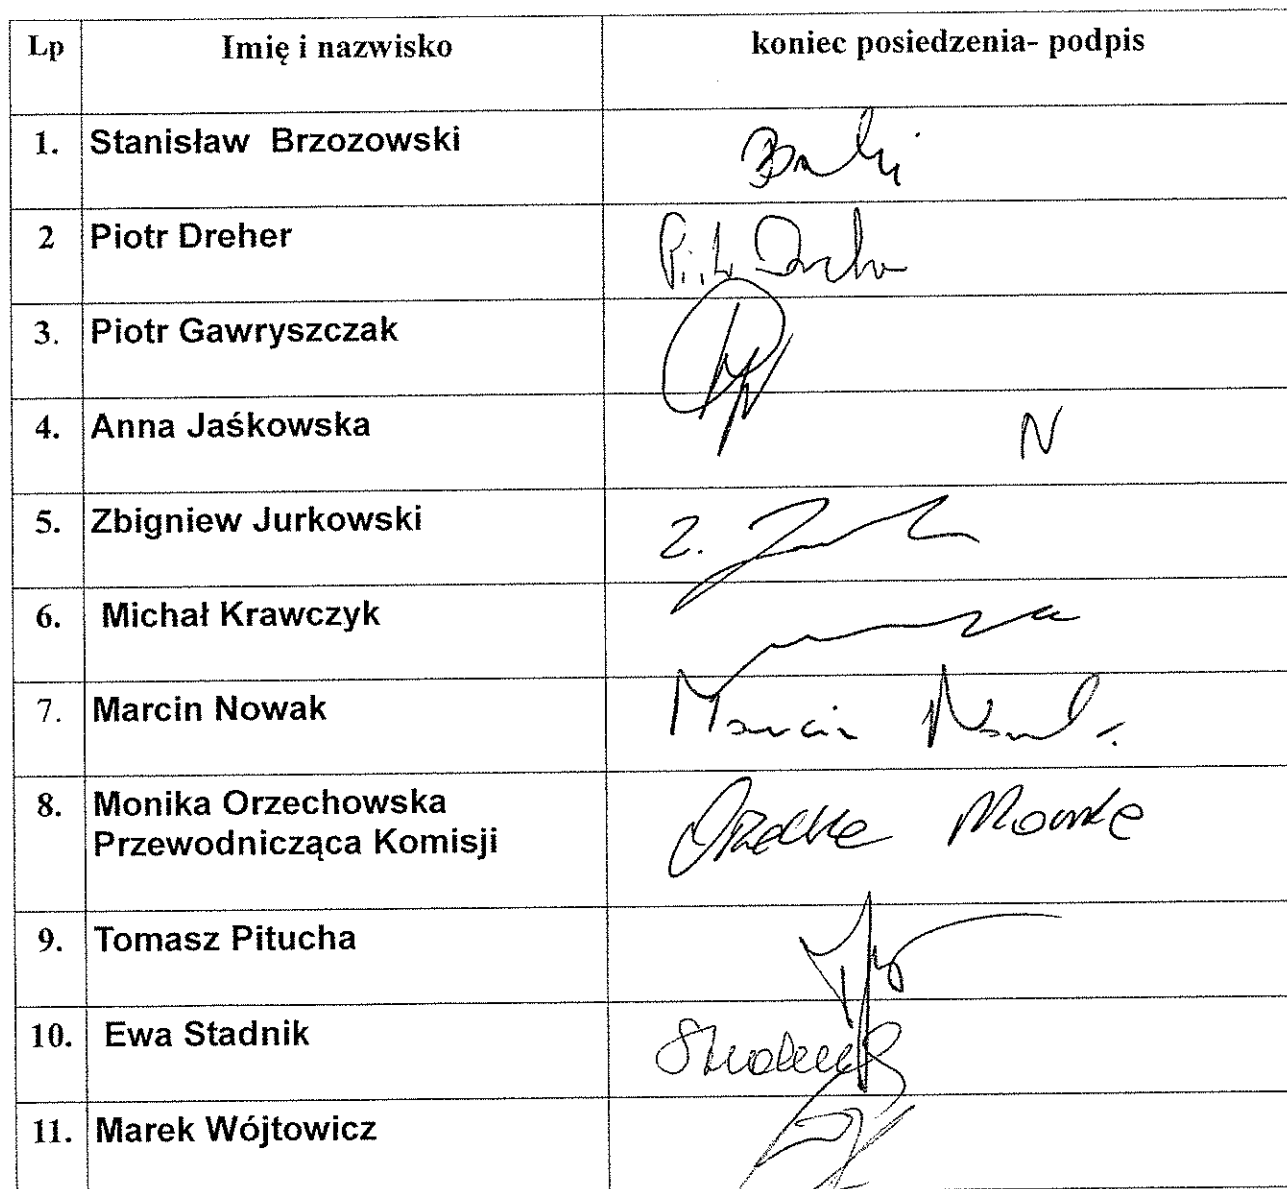 Lp Imię i nazwisko koniec posiedzenia- podpis
1. Stanisław Brzozowski
2 Piotr Dreher
3. Piotr Gawryszczak
4. Anna Jaśkowska N
5. Zbigniew Jurkowski
6. Michał Krawczyk
7. Marcin Nowak Marcin Nowak
8. Monika Orzechowska
Przewodnicząca Komisji
9. Tomasz Pitucha
10. Ewa Stadnik
11. Marek Wójtowicz